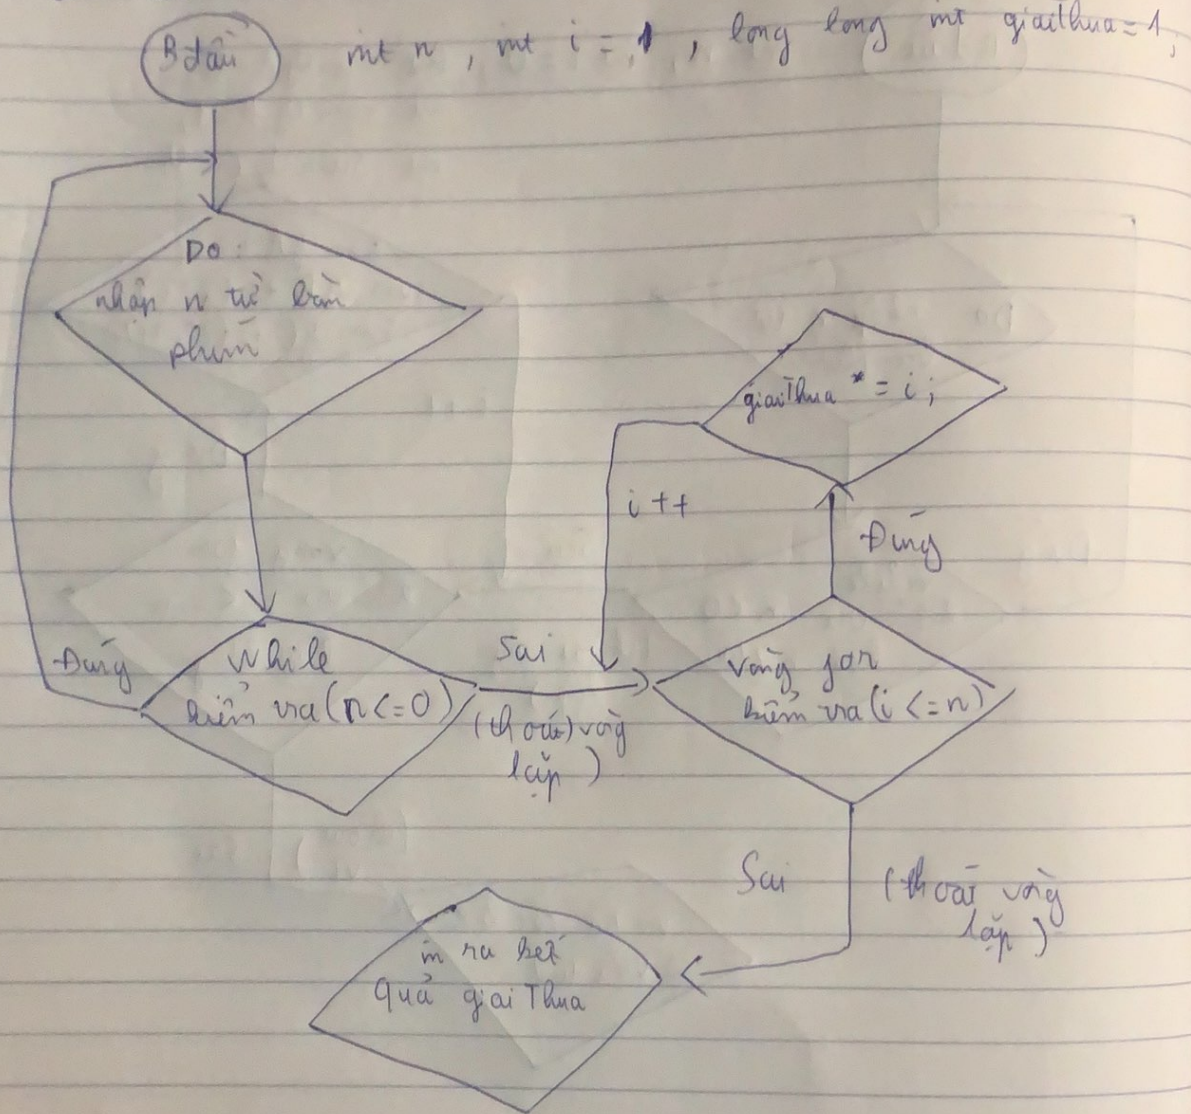 B đầu
int n , int i = 1 , long long int giaithua = 1,
Do :
nhập n từ bàn
phím
giaiThua * = i ;
i ++
Đúng
Đúng
While
kiểm tra (n <= 0)
Sai
(thoát) vòng
lặp )
vòng for
kiểm tra (i <= n)
Sai
(thoát vòng
lặp )
in ra kết
quả giaiThua